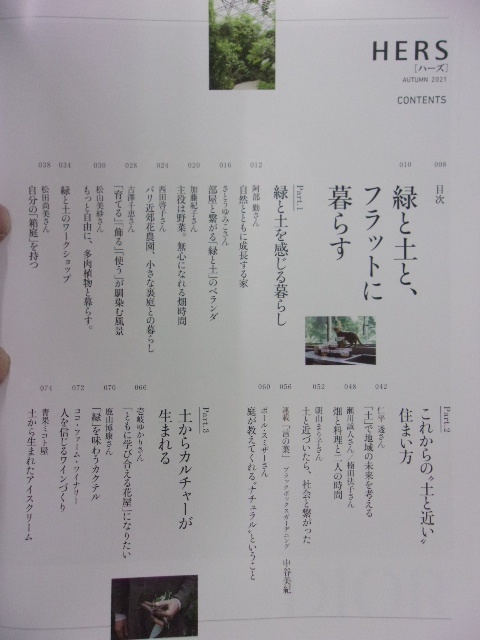 HERS
[ハーズ]
AUTUMN 2021
CONTENTS
008
目次
010
緑と土と、
フラットに
暮らす
Part.1
緑と土を感じる暮らし
012
阿部 勤さん
自然とともに成長する家
016
さとうゆみこさん
部屋と繋がる「緑と土」のベランダ
020
加藤紀子さん
主役は野菜。無心になれる畑時間
024
西田啓子さん
パリ近郊花農園、小さな裏庭との暮らし
028
古澤千恵さん
「育てる」「飾る」「使う」が馴染む風景
030
松山美紗さん
もっと自由に、多肉植物と暮らす。
034
緑と土のワークショップ
038
松田尚美さん
自分の「箱庭」を持つ
Part.2
これからの“土と近い”
住まい方
042
仁平 透さん
「土」で地域の未来を考える
048
瀬川誠人さん／楠田法子さん
畑と料理と二人の時間
052
朝山まり子さん
土と近づいたら、社会と繋がった
056
連載「渚の菜」 ブラックボックスガーデニング 中谷美紀
060
ポール・スミザーさん
庭が教えてくれる“ナチュラル”ということ
Part.3
土からカルチャーが
生まれる
066
壱岐ゆかりさん
「ともに学び合える花屋」になりたい
070
鹿山博康さん
「緑」を味わうカクテル
072
ココ・ファーム・ワイナリー
人を信じるワインづくり
074
青果ミコト屋
土から生まれたアイスクリーム